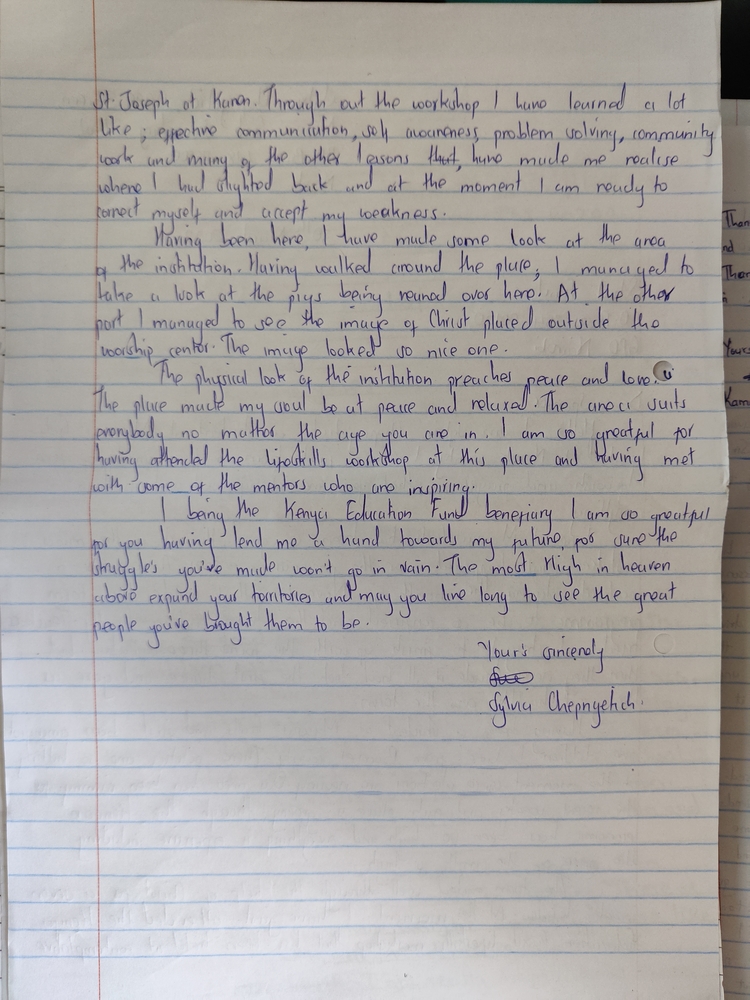 St. Joseph at Karen. Through out the workshop I have learned a lot
like; effective communication, self awareness, problem solving, community
work and many of the other lessons that, have made me realise
where I had slighted back and at the moment I am ready to
correct myself and accept my weakness.
Having been here, I have made some look at the area
of the institution. Having walked around the place, I managed to
take a look at the pigs being reared over here. At the other
part I managed to see the image of Christ placed outside the
worship center. The image looked so nice one.
The physical look of the institution preaches peace and love.
The place made my soul be at peace and relaxed. The area suits
everybody no matter the age you are in. I am so greatful for
having attended the lifeskills workshop at this place and having met
with some of the mentors who are inspiring.
I being the Kenya Education Fund benefiary I am so greatful
for you having lend me a hand towards my future, for sure the
struggle's you've made won't go in vain. The most High in heaven
above expand your territories and may you live long to see the great
people you've brought them to be.
Your's sincerely
Sylvia Chepngetich.
Than
nd
Than
Yours
Kam